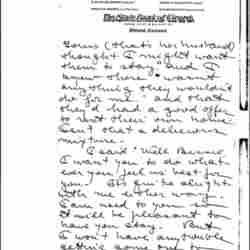 The State Bank of Girard
Girard, Kansas
(that's her husband)
thought I might want
them to stay and I
knew there wasn't
anything they wouldn't
do for me and that
they'd had a good offer
to rent their own home
Isn't that a delicious
mixture.
I said "Well
I want you to do what-
ever you feel is best for
you. It's all right
with me either way.
I am used to you
it will be pleasant to
have you stay. But
I won't have any trouble
getting some one to